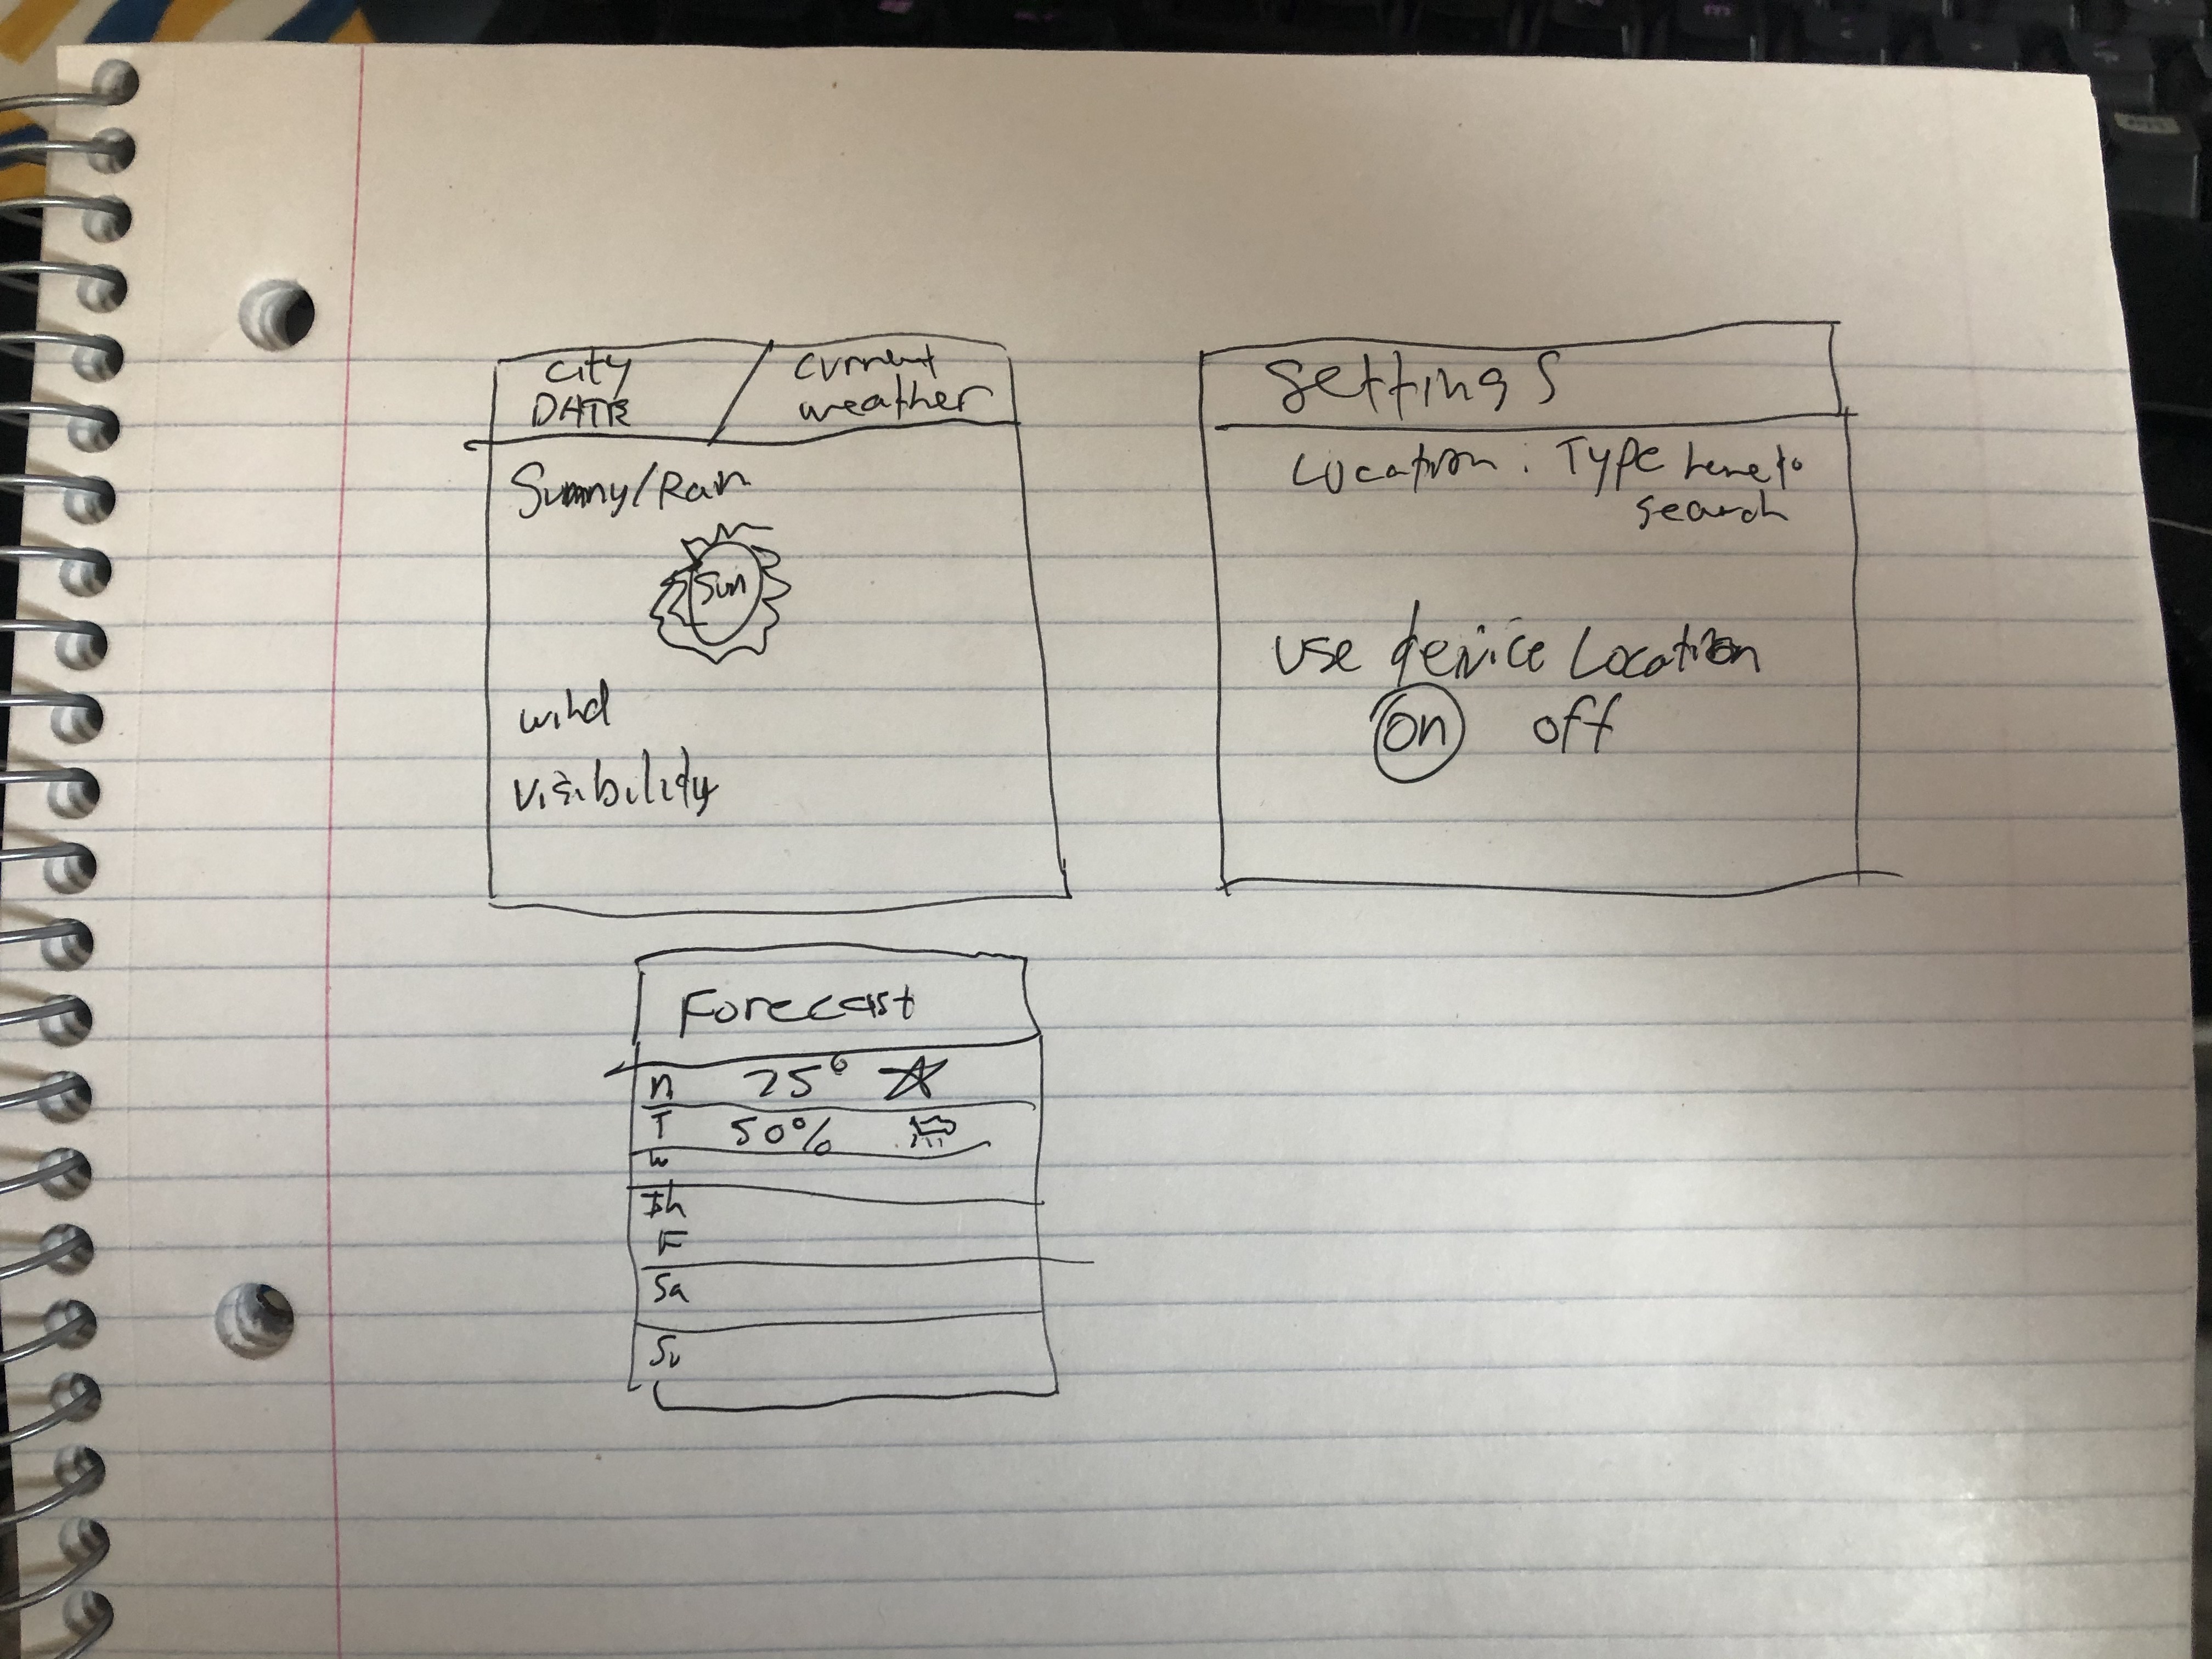 City
DATE
current
weather
Sunny/Rain
Sun
wind
visibility
Settings
Location: Type here to
search
Use device Location
on off
Forecast
M 25°
T 50%
W
Th
F
Sa
Su